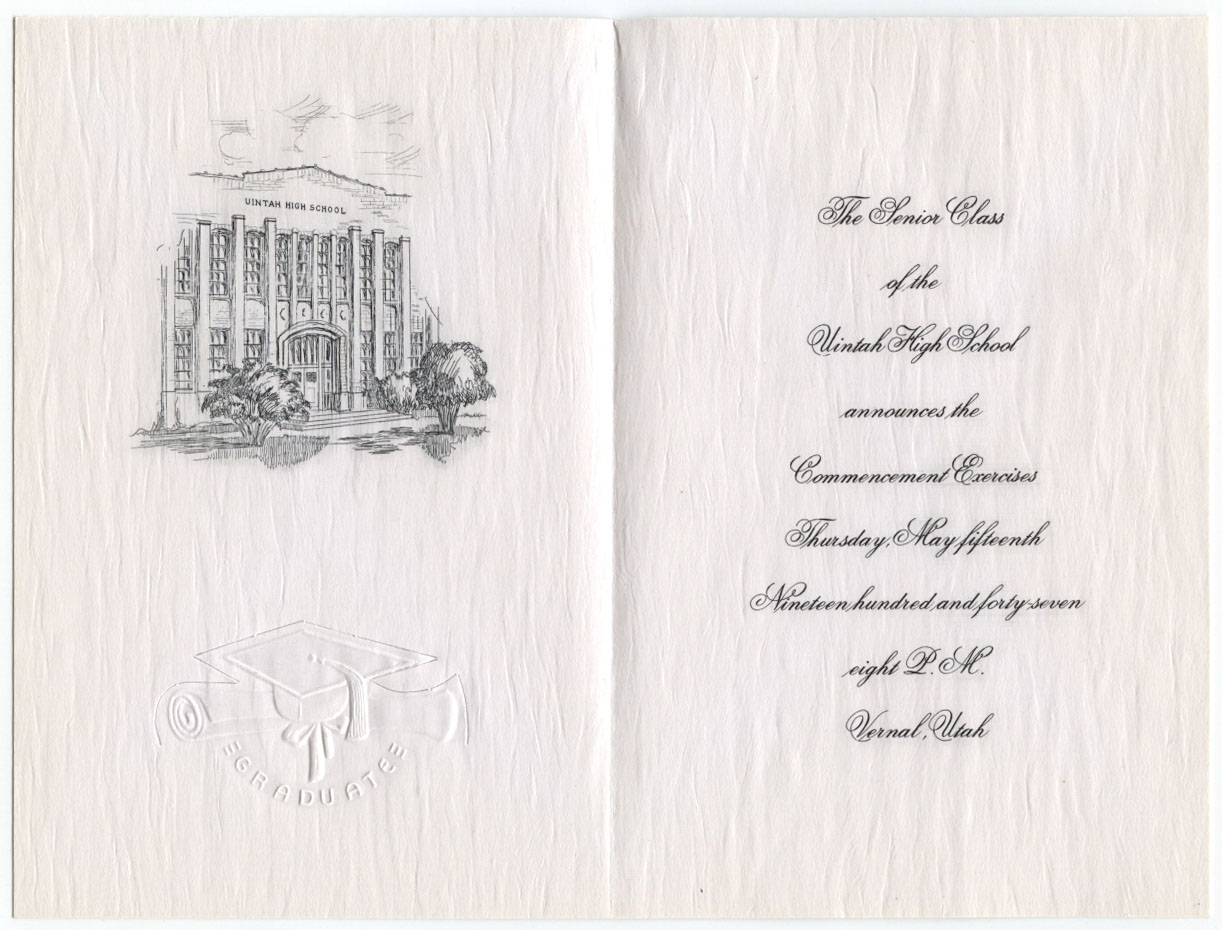 UINTAH HIGH SCHOOL
GRADUATE
The Senior Class
of the
Uintah High School
announces the
Commencement Exercises
Thursday, May fifteenth
Nineteen hundred and forty-seven
eight P. M.
Vernal, Utah